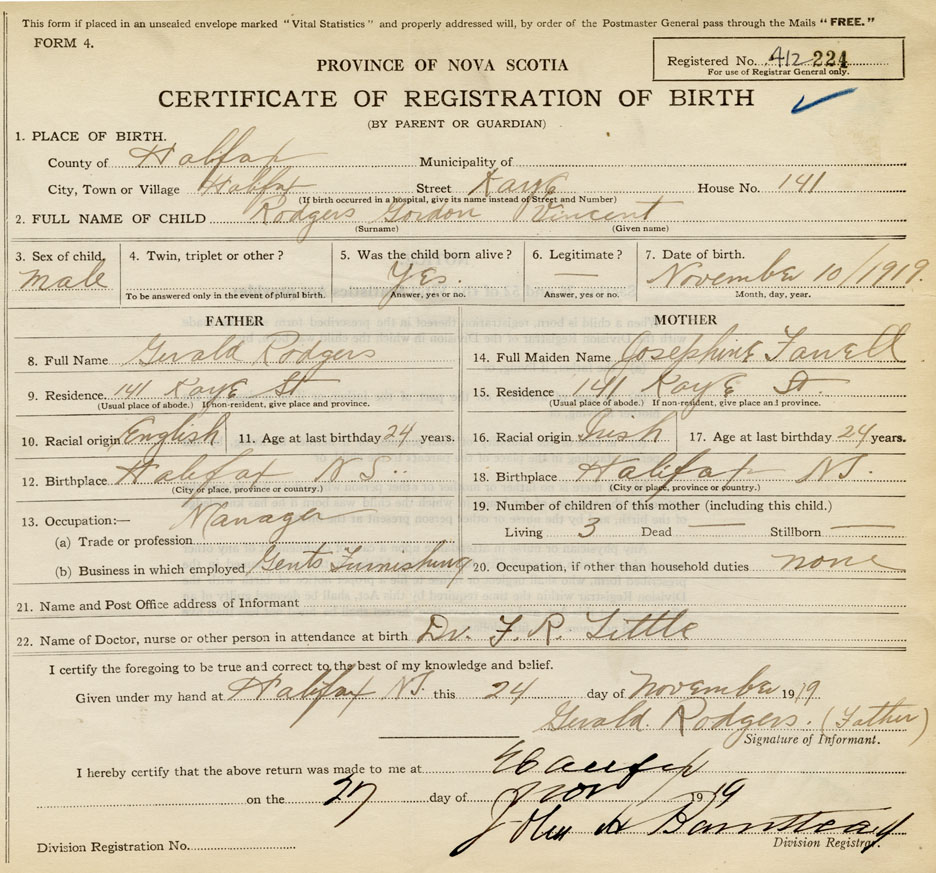 This form if placed in an unsealed envelope marked "Vital Statistics" and properly addressed will, by order of the Postmaster General pass through the Mails "FREE."
FORM 4.
Registered No. 412 224
For use of Registrar General only.
PROVINCE OF NOVA SCOTIA
CERTIFICATE OF REGISTRATION OF BIRTH
(BY PARENT OR GUARDIAN)
1. PLACE OF BIRTH.
County of Halifax Municipality of
City, Town or Village Halifax Street Kaye House No. 141
(If birth occurred in a hospital, give its name instead of Street and Number)
2. FULL NAME OF CHILD Rodgers Gordon Vincent
(Surname) (Given name)
3. Sex of child. 4. Twin, triplet or other? 5. Was the child born alive? 6. Legitimate? 7. Date of birth.
Male Yes. — November 10/1919.
To be answered only in the event of plural birth. Answer, yes or no. Answer, yes or no. Month, day, year.
FATHER MOTHER
8. Full Name Gerald Rodgers 14. Full Maiden Name Josephine Farrell
9. Residence 141 Kaye St 15. Residence 141 Kaye St.
(Usual place of abode.) If non-resident, give place and province. (Usual place of abode.) If non-resident, give place and province.
10. Racial origin English 11. Age at last birthday 24 years. 16. Racial origin Irish 17. Age at last birthday 24 years.
12. Birthplace Halifax N S. 18. Birthplace Halifax NS.
(City or place, province or country.) (City or place, province or country.)
13. Occupation:— Manager 19. Number of children of this mother (including this child.)
(a) Trade or profession Living 3 Dead — Stillborn —
(b) Business in which employed Gents Furnishing 20. Occupation, if other than household duties none
21. Name and Post Office address of Informant
22. Name of Doctor, nurse or other person in attendance at birth Dr. F. R. Little
I certify the foregoing to be true and correct to the best of my knowledge and belief.
Given under my hand at Halifax NS. this 24 day of November 1919
Gerald Rodgers. (Father)
Signature of Informant.
I hereby certify that the above return was made to me at Halifax
on the 27 day of Nov 1919
John A
Division Registrar.
Division Registration No.